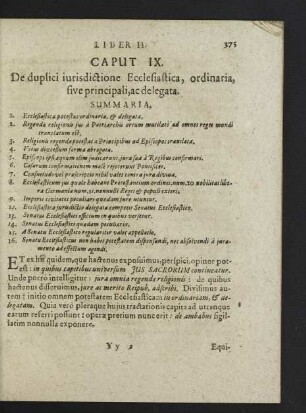 LIBER II. 375
CAPUT IX.
De duplici iurisdictione Ecclesiastica, ordinaria,
sive principali, ac delegata.
SUMMARIA.
1. Ecclesiastica potestas ordinaria, & delegata.
2. Regenda religionis jus à Patriarchis ad omnes reges mundi
translatum est.
3. Religionis regenda potestas a Principibus ad Episcopos translata.
4. Vetus discessum forma abrogata.
5. Episcopi ipsi olim judicarunt, jura sua à Regibus confirmari.
6. Casarum confirmationem male rejecerunt Pontifices.
7. Consuetudo vel praescriptio nihil valet contra jura divina.
8. Ecclesiasticum jus quale habeant Protestantium ordines, num. 10 nobilitas libera
Germania num. 11 nonnulli Reges & populi exteri.
9. Imperii civitates peculiari quodam jure nituntur.
12. Ecclesiastica jurisdictio delegata competit Senatui Ecclesiastico.
13. Senatus Ecclesiastici officium in quibus versetur.
14. Senatus Ecclesiastici quadam peculiaria.
15. à Senatu Ecclesiastico regulariter valet appellatio.
16. Senatus Ecclesiasticus non habet potestatem dispensandi, nec absolvendi à juramento
ad effectum agendi.
ET ex his quidem, quæ hactenus exposuimus, perspici, opinor potest
: in quibus capitibus universum JUS SACRORUM contineatur.
Unde porrò intelligitur : jura omnia regenda religionis : de quibus
hactenus disseruimus, jure ac merito Reipub. adscribi. Divisimus autem
† initio omnem potestatem Ecclesiasticam in ordinariam, & delegatam.
Quia verò pleraque hujus tractationis capita ad utranque
earum referri possunt : opera pretium nunc erit : de ambabus sigillatim
nonnulla exponere.
Yy 2 Equi-